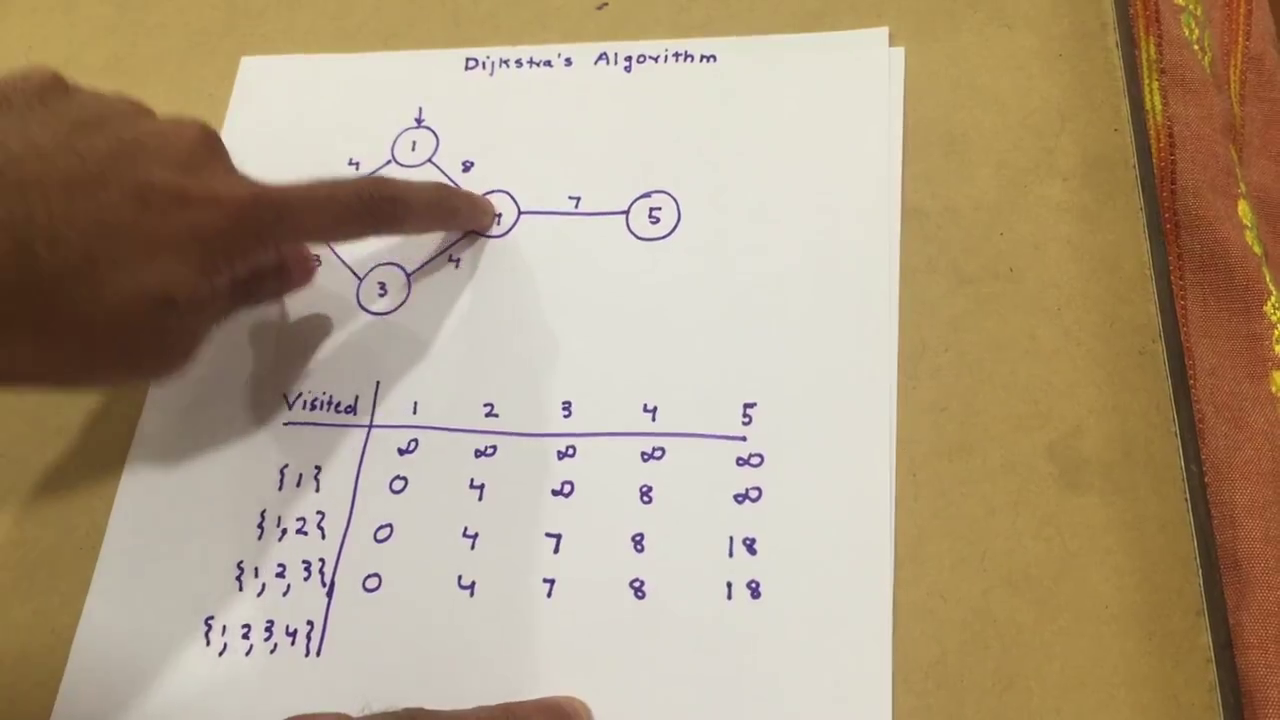 Dijkstra's Algorithm
1
4 8
7
5
3 4
3
Visited 1 2 3 4 5
∞ ∞ ∞ ∞ ∞
{1} 0 4 ∞ 8 ∞
{1,2} 0 4 7 8 18
{1,2,3} 0 4 7 8 18
{1,2,3,4}